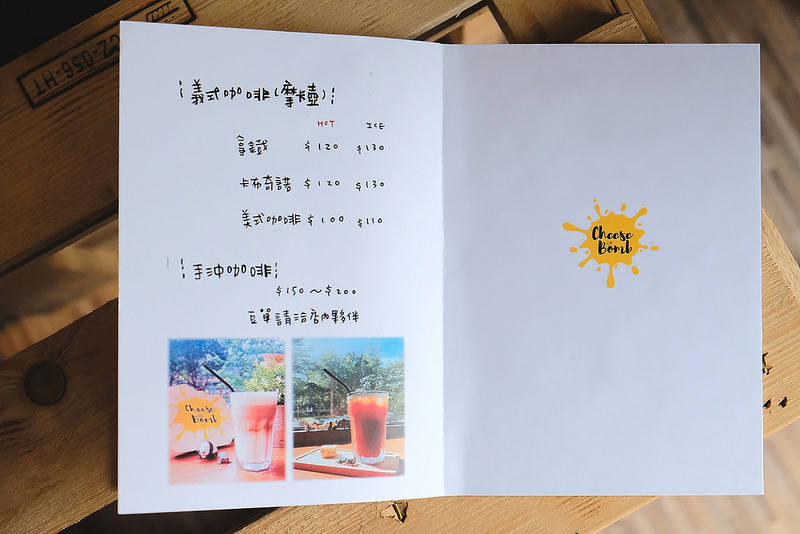 義式咖啡(摩卡壺)
HOT ICE
拿鐵 $120 $130
卡布奇諾 $120 $130
美式咖啡 $100 $110
手沖咖啡
$150～$200
豆單請洽店內夥伴
Cheese
Bomb
Cheese
Bomb
CZ-056-HT